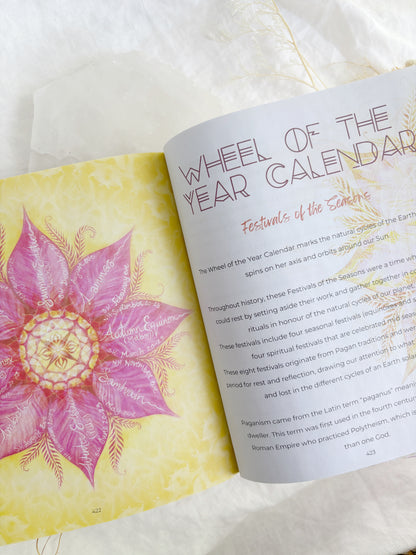 Samhain
Autumn Equinox
422
WHEEL OF THE
YEAR CALENDAR
Festivals of the Seasons
The Wheel of the Year Calendar marks the natural cycles of the Earth
spins on her axis and orbits around our Sun.
Throughout history, these Festivals of the Seasons were a time whe
could rest by setting aside their work and gather together in
rituals in honour of the natural cycles of our planet.
These festivals include four seasonal festivals (equi
four spiritual festivals that are celebrated mid sea
These eight festivals originate from Pagan traditions and
period for rest and reflection, drawing our attention to what
and lost in the different cycles of an Earth
Paganism came from the Latin term "paganus" mean
dweller. This term was first used in the fourth centur
Roman Empire who practiced Polytheism, which
than one God.
423